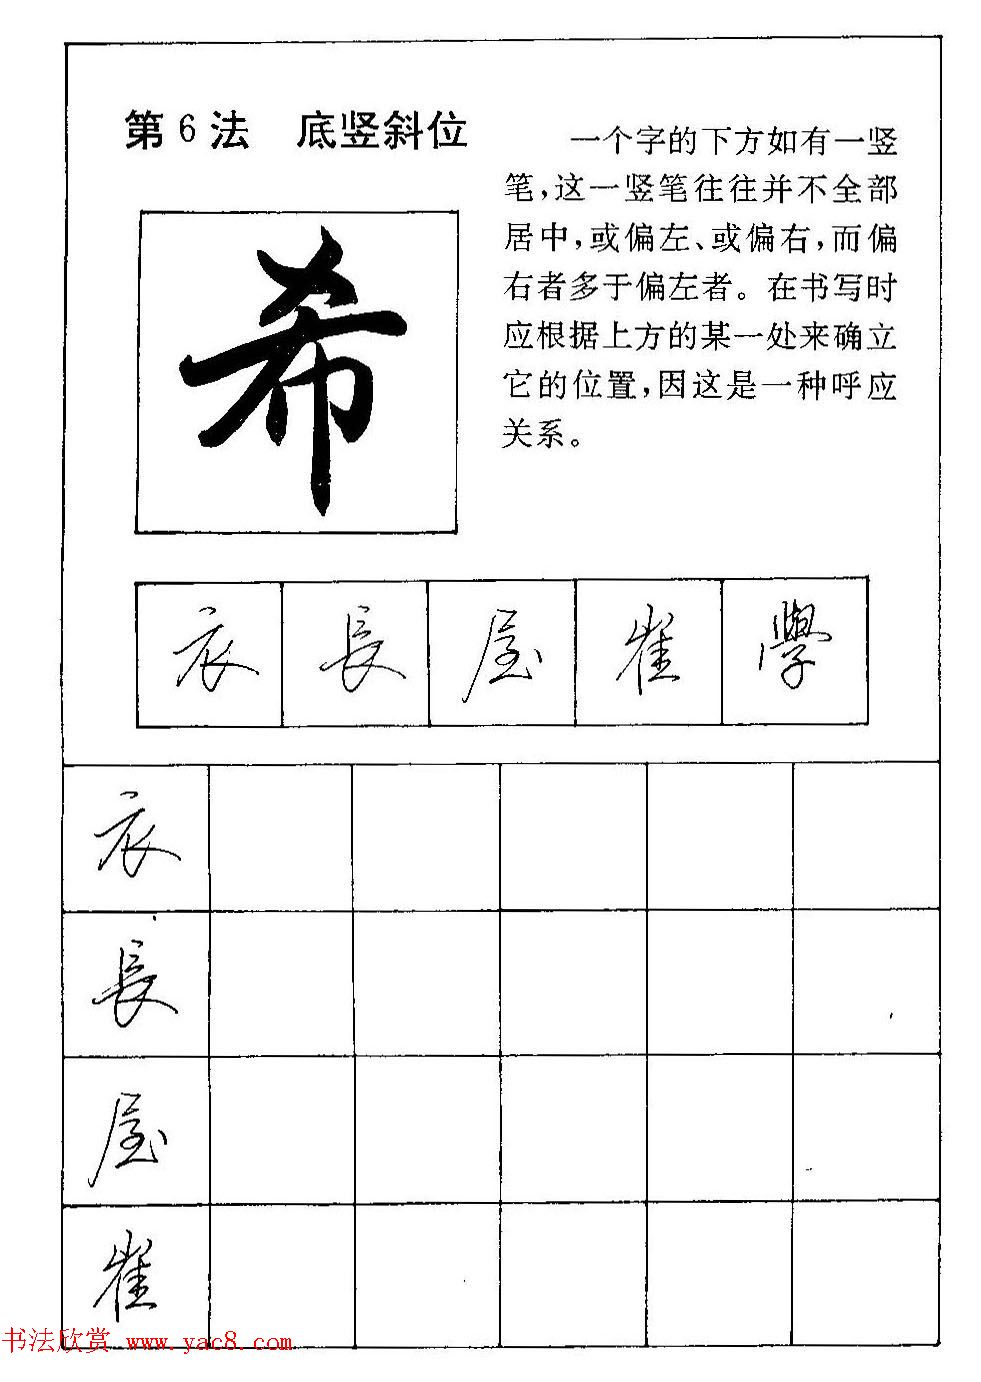 第6法 底竖斜位
一个字的下方如有一竖
笔，这一竖笔往往并不全部
居中，或偏左、或偏右，而偏
右者多于偏左者。在书写时
应根据上方的某一处来确立
它的位置，因这是一种呼应
关系。
希
衣 長 屋 崔 學
衣
長
屋
崔
书法欣赏 www.yac8.com